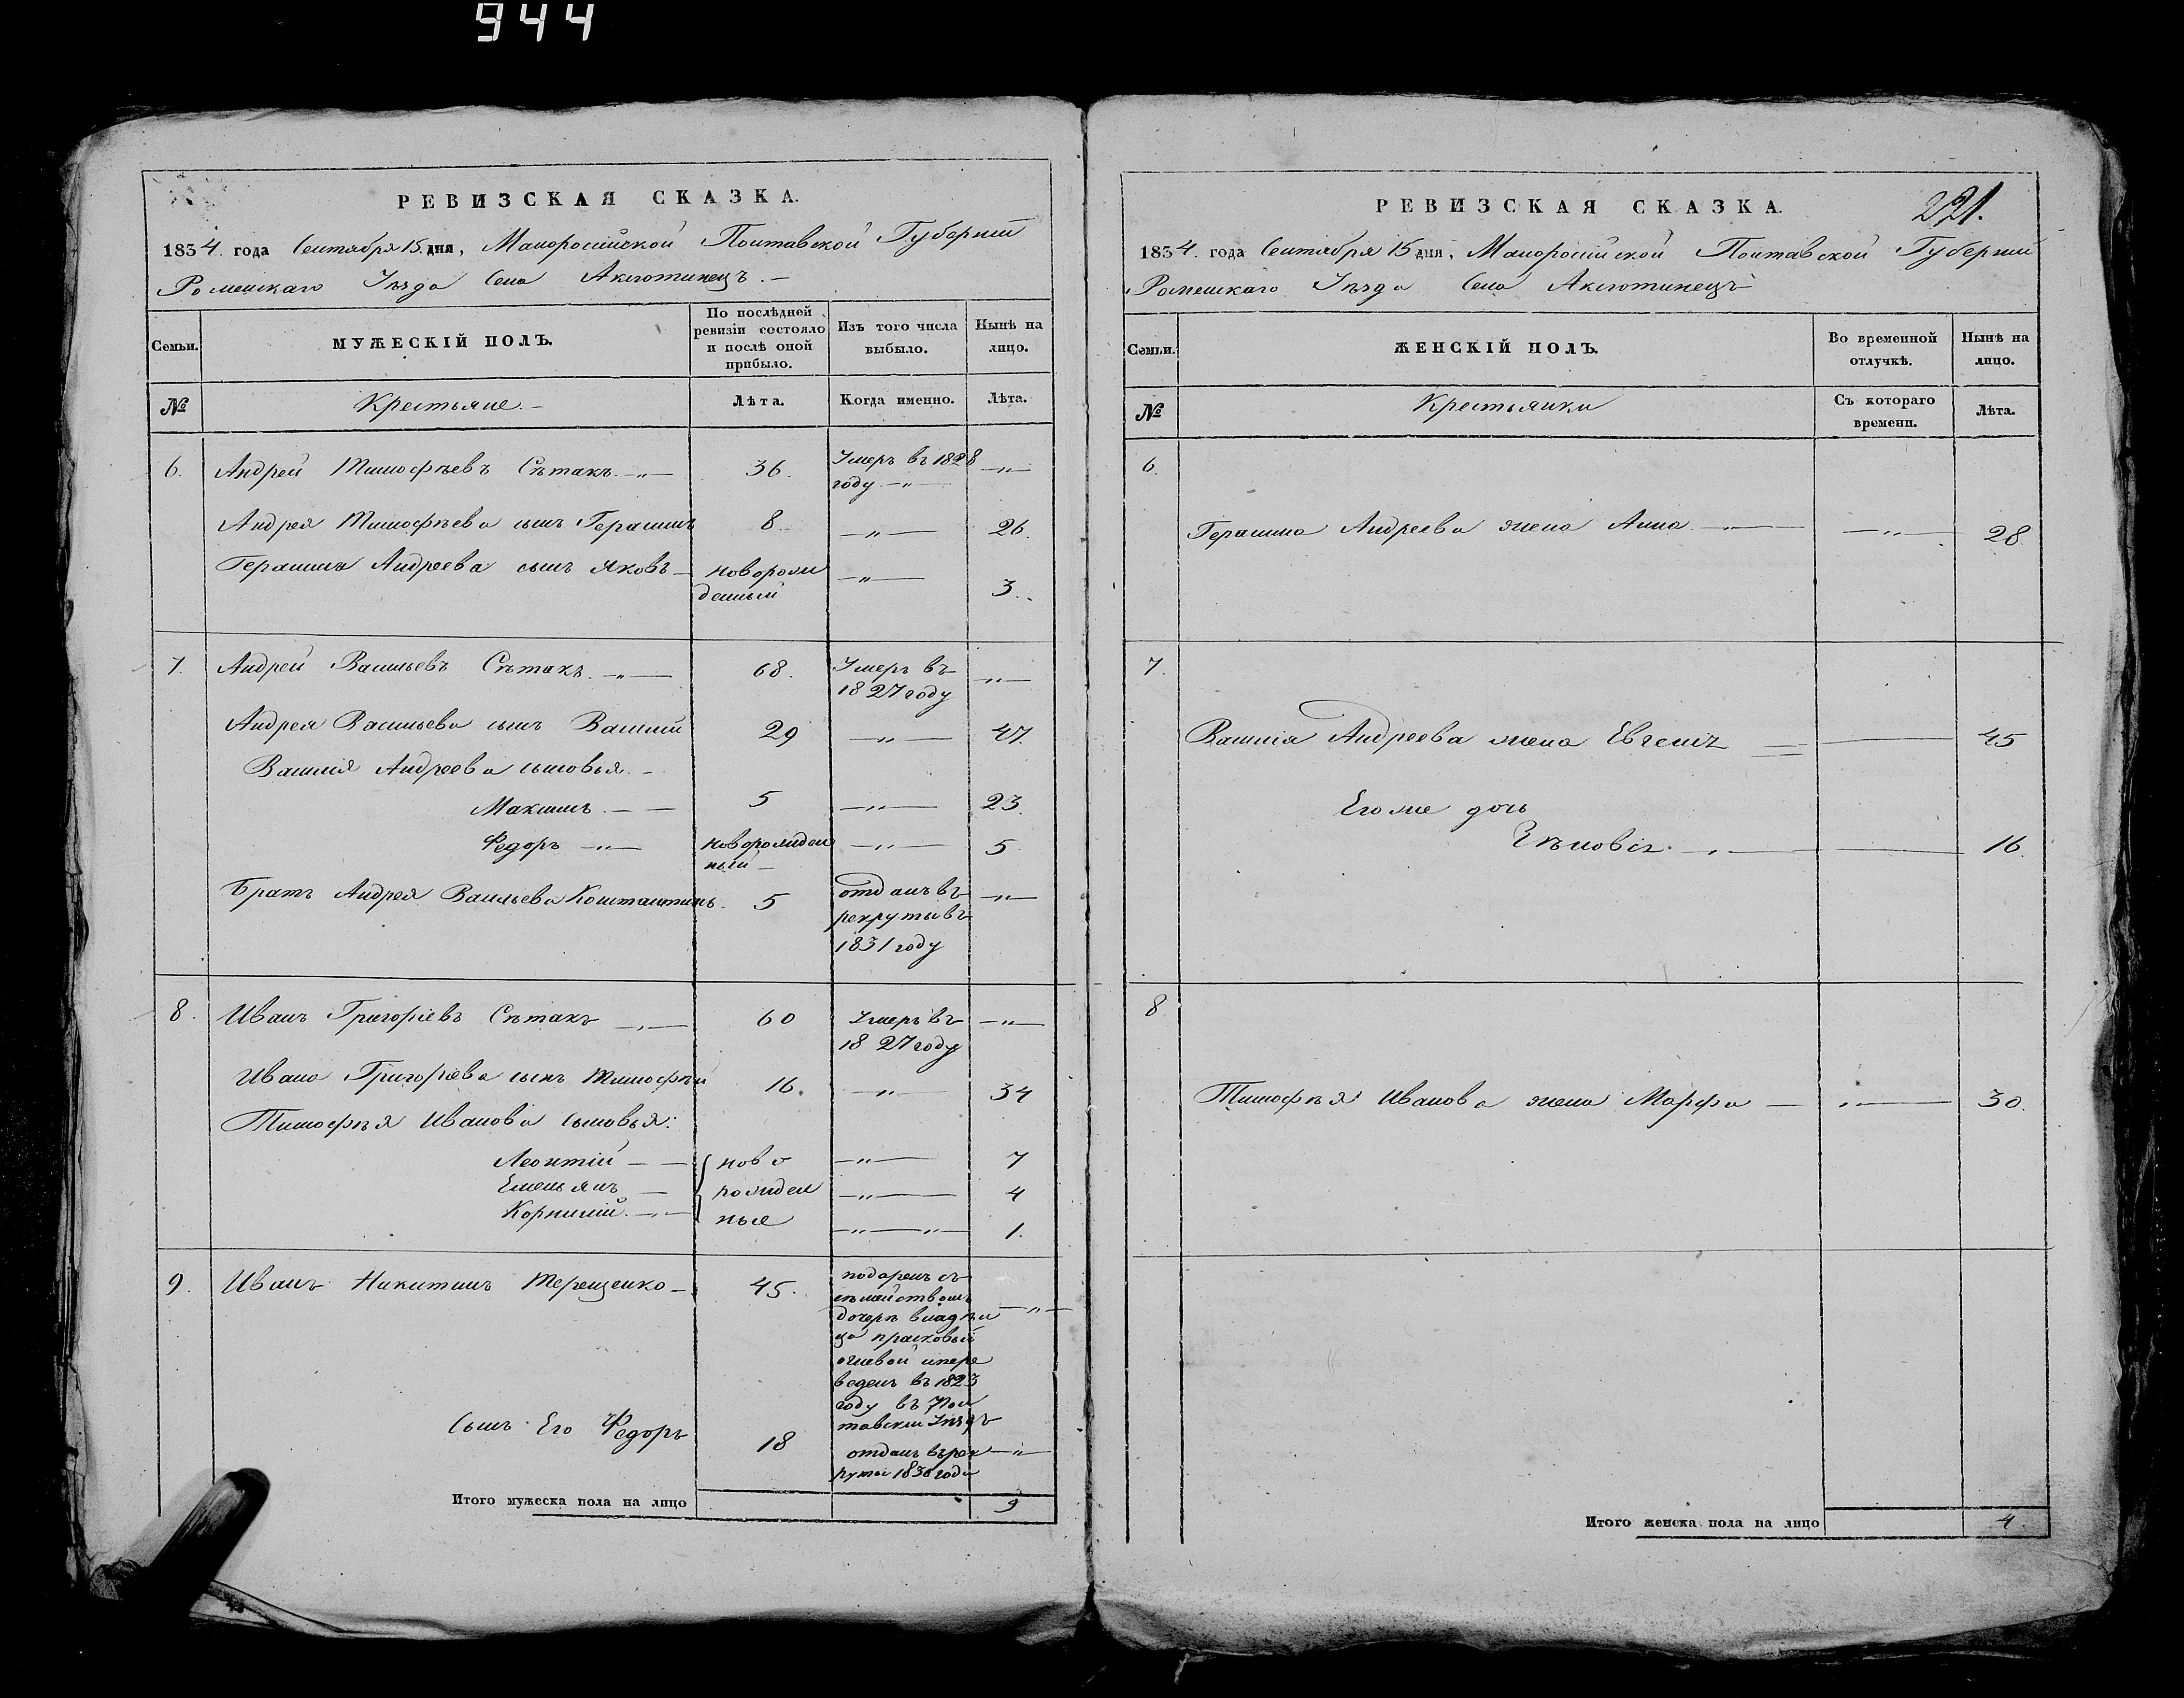 944
РЕВИЗСКАЯ СКАЗКА.
1834. года Сентября 15. дня, Малоросійской Полтавской Губерніи
Роменскаго Уѣзда Села Аксютинецъ. —
Семьи.
МУЖЕСКІЙ ПОЛЪ.
По послѣдней ревизіи состояло и послѣ оной прибыло.
Изъ того числа выбыло.
Нынѣ на лицо.
№
Крестьяне. —
Лѣта.
Когда именно.
Лѣта.
6. Андрей Тимофѣевъ Сѣтакъ. —„— 36. Умеръ въ 1828 —„—
году —„—
Андрея Тимофѣева сынъ Герасимъ 8. —„— 26.
Герасима Андреева сынъ Яковъ — Новорож —„— 3.
денный
7. Андрей Васильевъ Сѣтакъ. —„— 68. Умеръ въ —„—
1827 году
Андрея Васильева сынъ Василій 29 —„— 47.
Василія Андреева сыновья. —
Максимъ. — — 5 —„— 23.
Федоръ —„— новорожден —„— 5
ный —
Братъ Андрея Васильева Константинъ. 5 отданъ въ —„—
рекруты въ
1831 году
8. Иванъ Григоріевъ Сѣтакъ —„— 60 Умеръ въ —„—
1827 году
Ивана Григоріева сынъ Тимофѣй 16. —„— 34
Тимофѣя Иванова сыновья:
Леонтій — — ново —„— 7
Емельянъ — рожден —„— 4
Корнилій. —„— ные —„— „— 1.
9. Иванъ Никитинъ Терещенко — 45. подаренъ съ
семействомъ
дочерѣ владѣль —„—
ца прасковьи
и пере
веденъ въ 1823
году въ Пол
тавскій Уѣздъ
Сынъ Его Федоръ 18 отданъ въ рек —„—
руты 1830 года
Итого мужеска пола на лицо 9
РЕВИЗСКАЯ СКАЗКА.
221.
1834. года Сентября 15 дня, Малоросійской Полтавской Губерніи
Роменскаго Уѣзда Села Аксютинецъ
Семьи.
ЖЕНСКІЙ ПОЛЪ.
Во временной отлучкѣ.
Нынѣ на лицо.
№
Крестьянки
Съ котораго времени.
Лѣта.
6.
Герасима Андреева жена Анна —„— —„— 28.
7.
Василія Андреева жена Евгенія — — 45
Его же дочь
—„— — 16.
8
Тимофѣя Иванова жена Марфа — „— 30.
Итого женска пола на лицо 4.